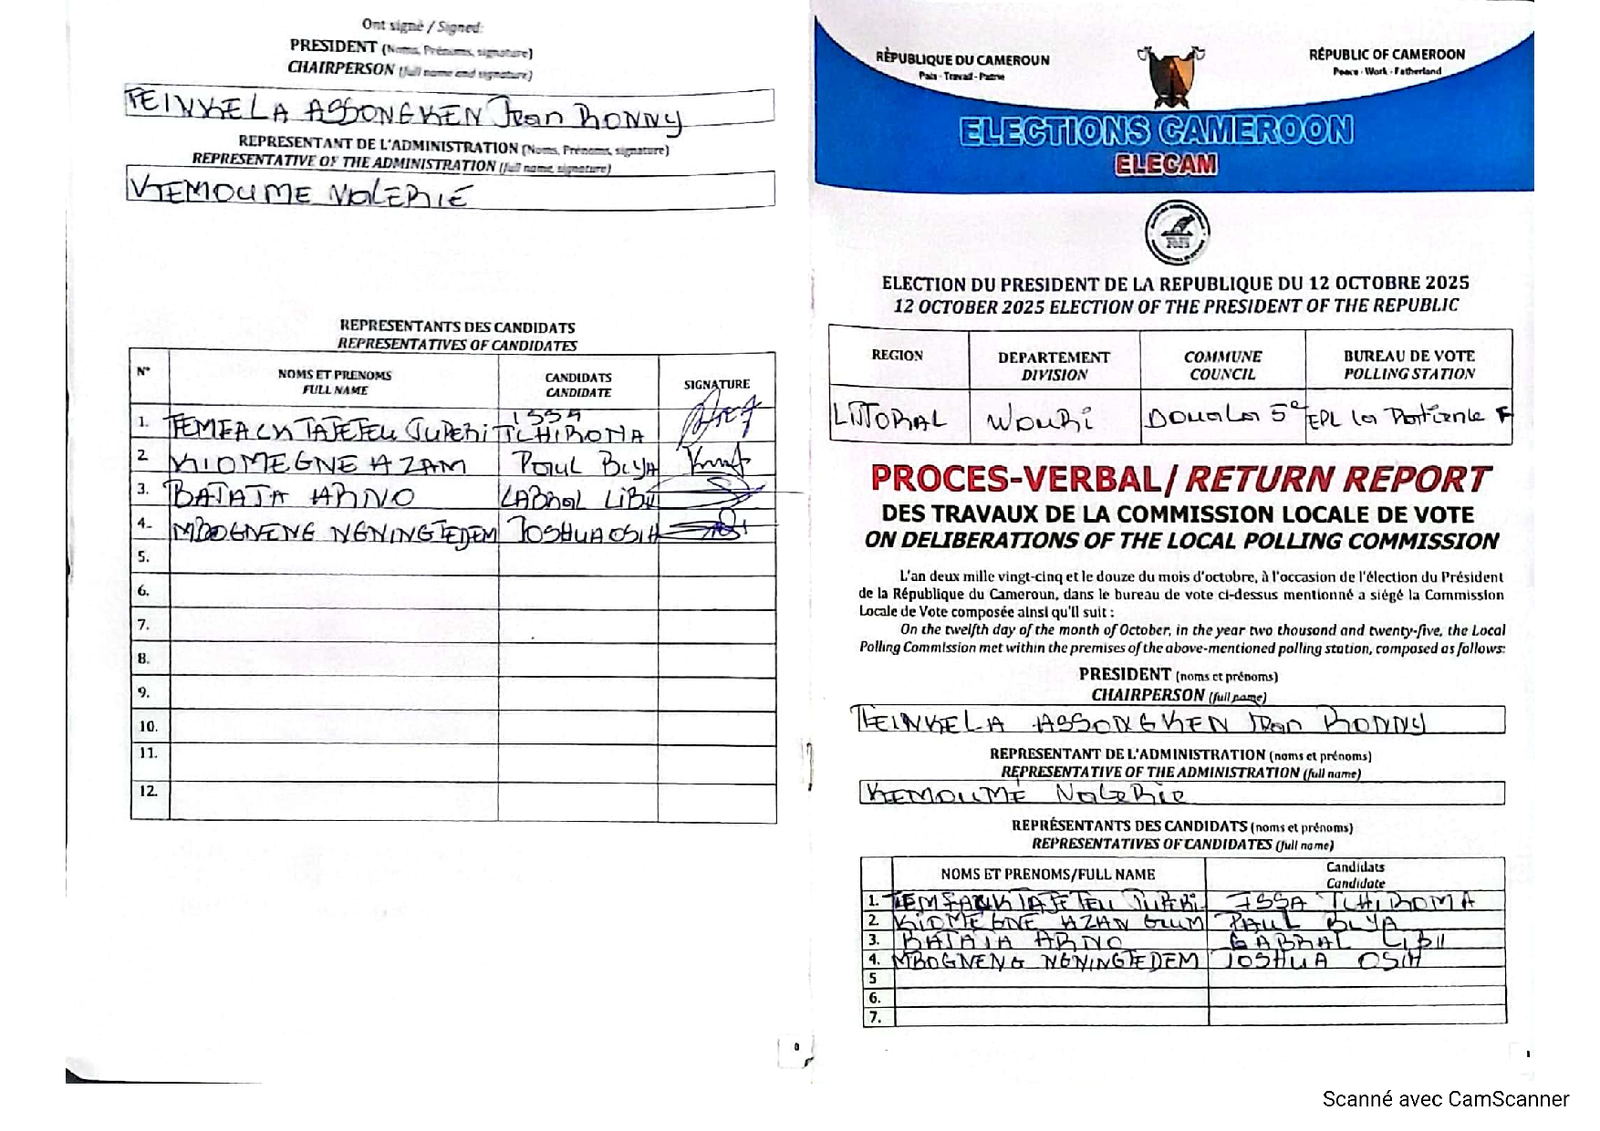 Ont signé / Signed:
PRESIDENT (Noms, Prénoms, signature)
CHAIRPERSON (full name and signature)
TEINKELA ASSONGKEN Jean RONNY
REPRESENTANT DE L'ADMINISTRATION (Noms, Prénoms, signature)
REPRESENTATIVE OF THE ADMINISTRATION (full name, signature)
KEMOUME VALERIE
REPRESENTANTS DES CANDIDATS
REPRESENTATIVES OF CANDIDATES
N° NOMS ET PRENOMS FULL NAME CANDIDATS CANDIDATE SIGNATURE
1. TEMFACK TAJETEU JUPERI ISSA TCHIROMA
2. KIOMEGNE AZAM PAUL BIYA
3. BATATA ARNO CABRAL LIBII
4. MBOGNENG NGNINGTEDEM JOSHUA OSIH
5.
6.
7.
8.
9.
10.
11.
12.
0
RÈPUBLIQUE DU CAMEROUN
Paix - Travail - Patrie
RÉPUBLIC OF CAMEROON
Peace - Work - Fatherland
ELECTIONS CAMEROON
ELECAM
2025
ELECTION DU PRESIDENT DE LA REPUBLIQUE DU 12 OCTOBRE 2025
12 OCTOBER 2025 ELECTION OF THE PRESIDENT OF THE REPUBLIC
REGION DEPARTEMENT DIVISION COMMUNE COUNCIL BUREAU DE VOTE POLLING STATION
LITTORAL WOURI DOUALA 5e EPL la Patience F
PROCES-VERBAL/ RETURN REPORT
DES TRAVAUX DE LA COMMISSION LOCALE DE VOTE
ON DELIBERATIONS OF THE LOCAL POLLING COMMISSION
L'an deux mille vingt-cinq et le douze du mois d'octobre, à l'occasion de l'élection du Président
de la République du Cameroun, dans le bureau de vote ci-dessus mentionné a siégé la Commission
Locale de Vote composée ainsi qu'il suit :
On the twelfth day of the month of October, in the year two thousand and twenty-five, the Local
Polling Commission met within the premises of the above-mentioned polling station, composed as follows:
PRESIDENT (noms et prénoms)
CHAIRPERSON (full name)
TEINKELA ASSONGKEN Jean RONNY
REPRESENTANT DE L'ADMINISTRATION (noms et prénoms)
REPRESENTATIVE OF THE ADMINISTRATION (full name)
KEMOUME Valerie
REPRÉSENTANTS DES CANDIDATS (noms et prénoms)
REPRESENTATIVES OF CANDIDATES (full name)
NOMS ET PRENOMS/FULL NAME Candidats Candidate
1. TEMFACK TAJETEU JUPERI ISSA TCHIROMA
2. KIOMEGNE AZAN GLUM PAUL BIYA
3. BATATA ARNO CABRAL LIBII
4. MBOGNENG NGNINGTEDEM JOSHUA OSIH
5
6.
7.
1
Scanné avec CamScanner